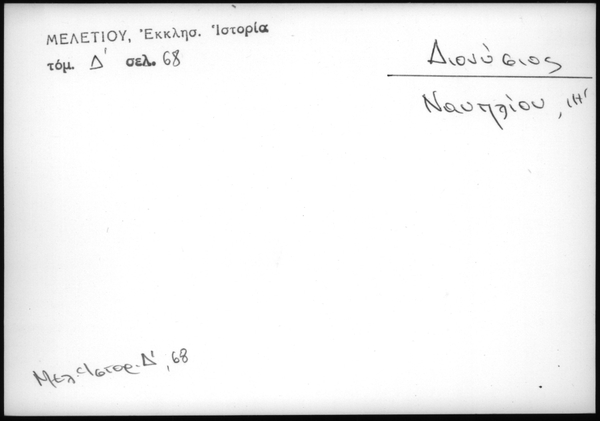 ΜΕΛΕΤΙΟΥ, Ἐκκλησ. Ἱστορία
τόμ. Δ' σελ. 68
Διονύσιος
Ναυπλίου, ιη'
Μελ. Ἱστορ. Δ', 68